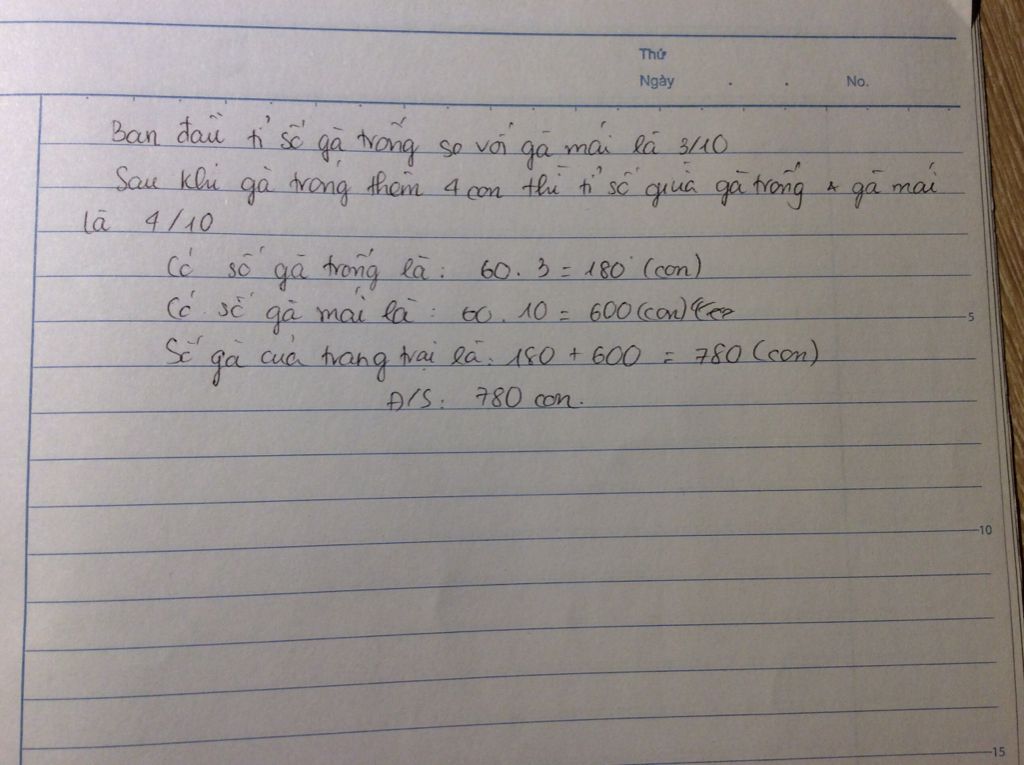 Thứ
Ngày . . No.
Ban đầu tỉ số gà trống so với gà mái là 3/10
Sau khi gà trống thêm 4 con thì tỉ số giữa gà trống & gà mái
là 4/10
Có số gà trống là: 60 . 3 = 180 (con)
Có số gà mái là: 60 . 10 = 600 (con)
5
Số gà của trang trại là: 180 + 600 = 780 (con)
Đ/S: 780 con.
10
15